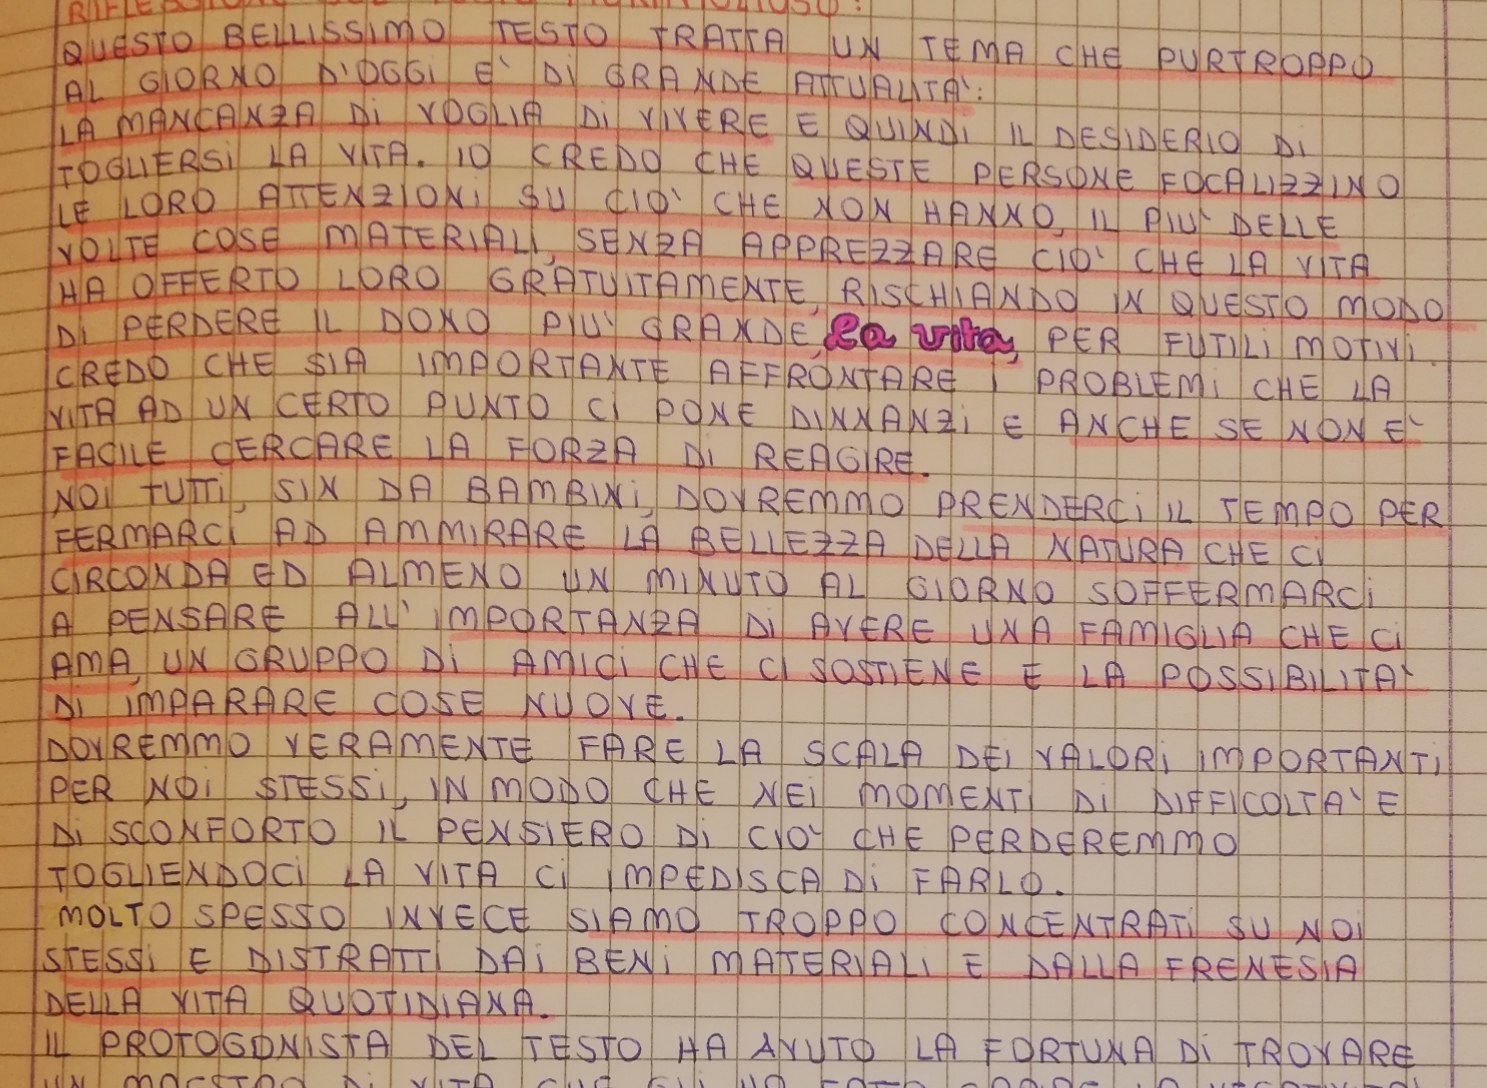 QUESTO BELLISSIMO TESTO TRATTA UN TEMA CHE PURTROPPO
AL GIORNO D'OGGI E' DI GRANDE ATTUALITA':
LA MANCANZA DI VOGLIA DI VIVERE E QUINDI IL DESIDERIO DI
TOGLIERSI LA VITA. IO CREDO CHE QUESTE PERSONE FOCALIZZINO
LE LORO ATTENZIONI SU CIO' CHE NON HANNO, IL PIU' DELLE
VOLTE COSE MATERIALI, SENZA APPREZZARE CIO' CHE LA VITA
HA OFFERTO LORO GRATUITAMENTE, RISCHIANDO IN QUESTO MODO
DI PERDERE IL DONO PIU' GRANDE, la vita, PER FUTILI MOTIVI.
CREDO CHE SIA IMPORTANTE AFFRONTARE I PROBLEMI CHE LA
VITA AD UN CERTO PUNTO CI PONE DINNANZI E ANCHE SE NON E'
FACILE CERCARE LA FORZA DI REAGIRE.
NOI TUTTI, SIN DA BAMBINI, DOVREMMO PRENDERCI IL TEMPO PER
FERMARCI AD AMMIRARE LA BELLEZZA DELLA NATURA CHE CI
CIRCONDA ED ALMENO UN MINUTO AL GIORNO SOFFERMARCI
A PENSARE ALL'IMPORTANZA DI AVERE UNA FAMIGLIA CHE CI
AMA, UN GRUPPO DI AMICI CHE CI SOSTIENE E LA POSSIBILITA'
DI IMPARARE COSE NUOVE.
DOVREMMO VERAMENTE FARE LA SCALA DEI VALORI IMPORTANTI
PER NOI STESSI, IN MODO CHE NEI MOMENTI DI DIFFICOLTA' E
DI SCONFORTO IL PENSIERO DI CIO' CHE PERDEREMMO
TOGLIENDOCI LA VITA CI IMPEDISCA DI FARLO.
MOLTO SPESSO INVECE SIAMO TROPPO CONCENTRATI SU NOI
STESSI E DISTRATTI DAI BENI MATERIALI E DALLA FRENESIA
DELLA VITA QUOTIDIANA.
IL PROTOGONISTA DEL TESTO HA AVUTO LA FORTUNA DI TROVARE